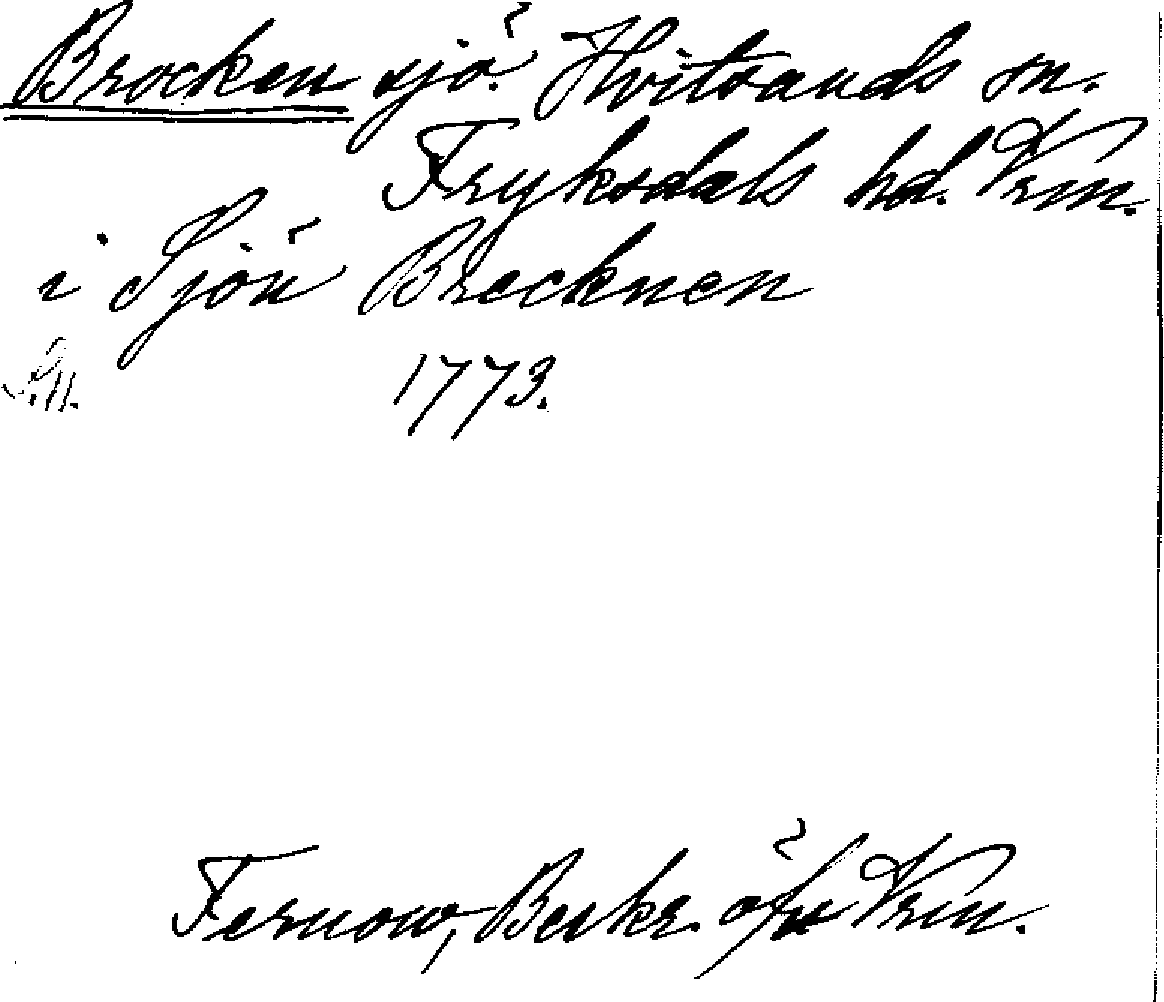 Brocken sjö. Hvitsands sn.
Fryksdals hd. Vrm.
i Sjön Brecknen
1773.
Fernow, Beskr. öfv Vrm.